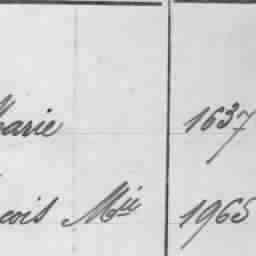 Marie 1637
cois Mie 1965